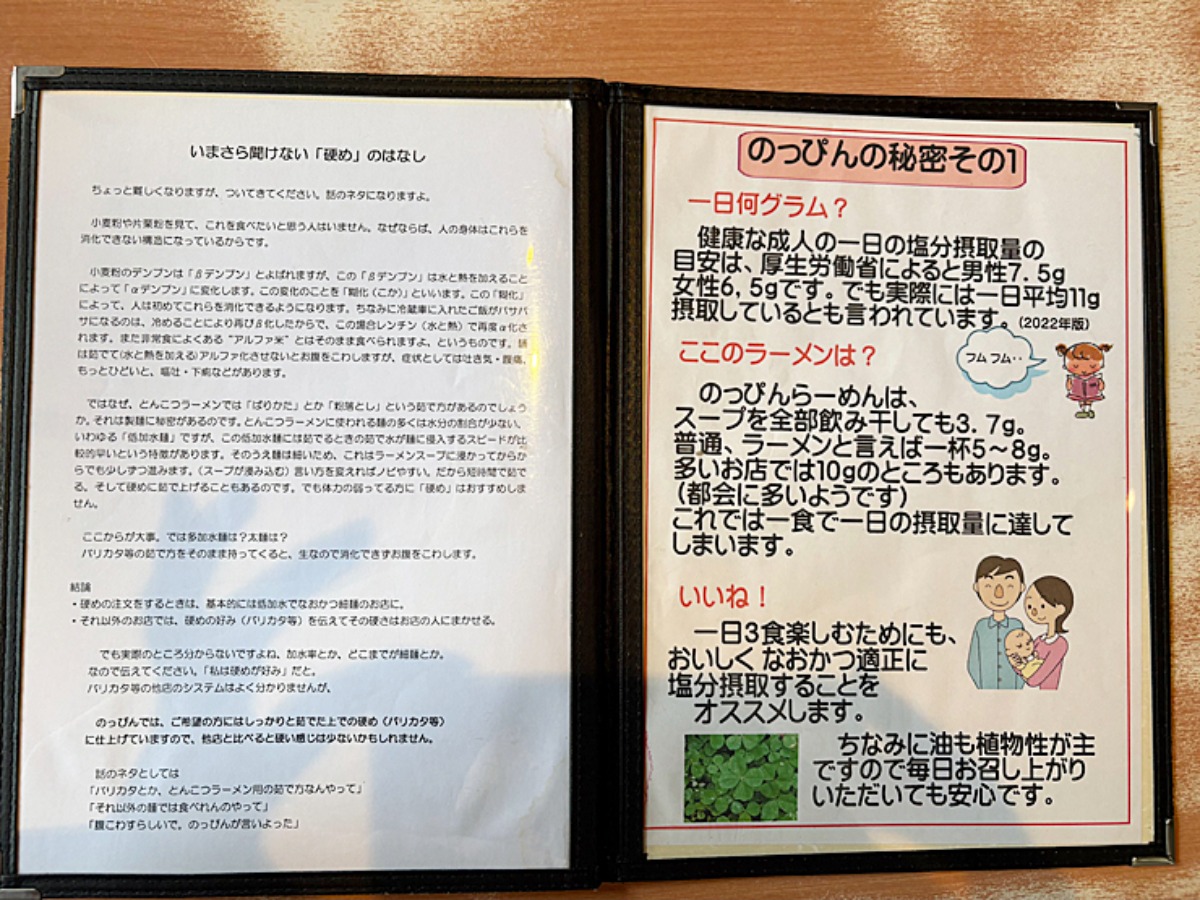 いまさら聞けない「硬め」のはなし
ちょっと難しくなりますが、ついてきてください。話のネタになりますよ。
小麦粉や片栗粉を見て、これを食べたいと思う人はいません。なぜならば、人の身体はこれらを
消化できない構造になっているからです。
小麦粉のデンプンは「βデンプン」とよばれますが、この「βデンプン」は水と熱を加えること
によって「αデンプン」に変化します。この変化のことを「糊化（こか）」といいます。この「糊化」
によって、人は初めてこれらを消化できるようになります。ちなみに冷蔵庫に入れたご飯がパサパ
サになるのは、冷めることにより再びβ化したからで、この場合レンチン（水と熱）で再度α化さ
れます。また非常食によくある“アルファ米”とはそのまま食べられますよ、というものです。麺
は茹でて(水と熱を加える)アルファ化させないとお腹をこわしますが、症状としては吐き気・腹痛、
もっとひどいと、嘔吐・下痢などがあります。
ではなぜ、とんこつラーメンでは「ばりかた」とか「粉落とし」という茹で方があるのでしょう
か。それは製麺に秘密があるのです。とんこつラーメンに使われる麺の多くは水分の割合が少ない、
いわゆる「低加水麺」ですが、この低加水麺には茹でるときの茹で水が麺に侵入するスピードが比
較的早いという特徴があります。そのうえ麺は細いため、これはラーメンスープに浸かってからか
らでも少しずつ進みます。（スープが浸み込む）言い方を変えればノビやすい。だから短時間で茹で
る、そして硬めに茹で上げることもあるのです。でも体力の弱ってる方に「硬め」はおすすめしま
せん。
ここからが大事。では多加水麺は？太麺は？
バリカタ等の茹で方をそのまま持ってくると、生なので消化できずお腹をこわします。
結論
・硬めの注文をするときは、基本的には低加水でなおかつ細麺のお店に。
・それ以外のお店では、硬めの好み（バリカタ等）を伝えてその硬さはお店の人にまかせる。
でも実際のところ分からないですよね、加水率とか、どこまでが細麺とか。
なので伝えてください。「私は硬めが好み」だと。
バリカタ等の他店のシステムはよく分かりませんが、
のっぴんでは、ご希望の方にはしっかりと茹でた上での硬め（バリカタ等）
に仕上げていますので、他店と比べると硬い感じは少ないかもしれません。
話のネタとしては
「バリカタとか、とんこつラーメン用の茹で方なんやって」
「それ以外の麺では食べれんのやって」
「腹こわすらしいで。のっぴんが言いよった」
のっぴんの秘密その1
一日何グラム？
健康な成人の一日の塩分摂取量の
目安は、厚生労働省によると男性7.5g
女性6,5gです。でも実際には一日平均11g
摂取しているとも言われています。(2022年版)
ここのラーメンは？
フムフム‥
のっぴんらーめんは、
スープを全部飲み干しても3.7g。
普通、ラーメンと言えば一杯5〜8g。
多いお店では10gのところもあります。
（都会に多いようです）
これでは一食で一日の摂取量に達して
しまいます。
いいね！
一日3食楽しむためにも、
おいしくなおかつ適正に
塩分摂取することを
オススメします。
ちなみに油も植物性が主
ですので毎日お召し上がり
いただいても安心です。